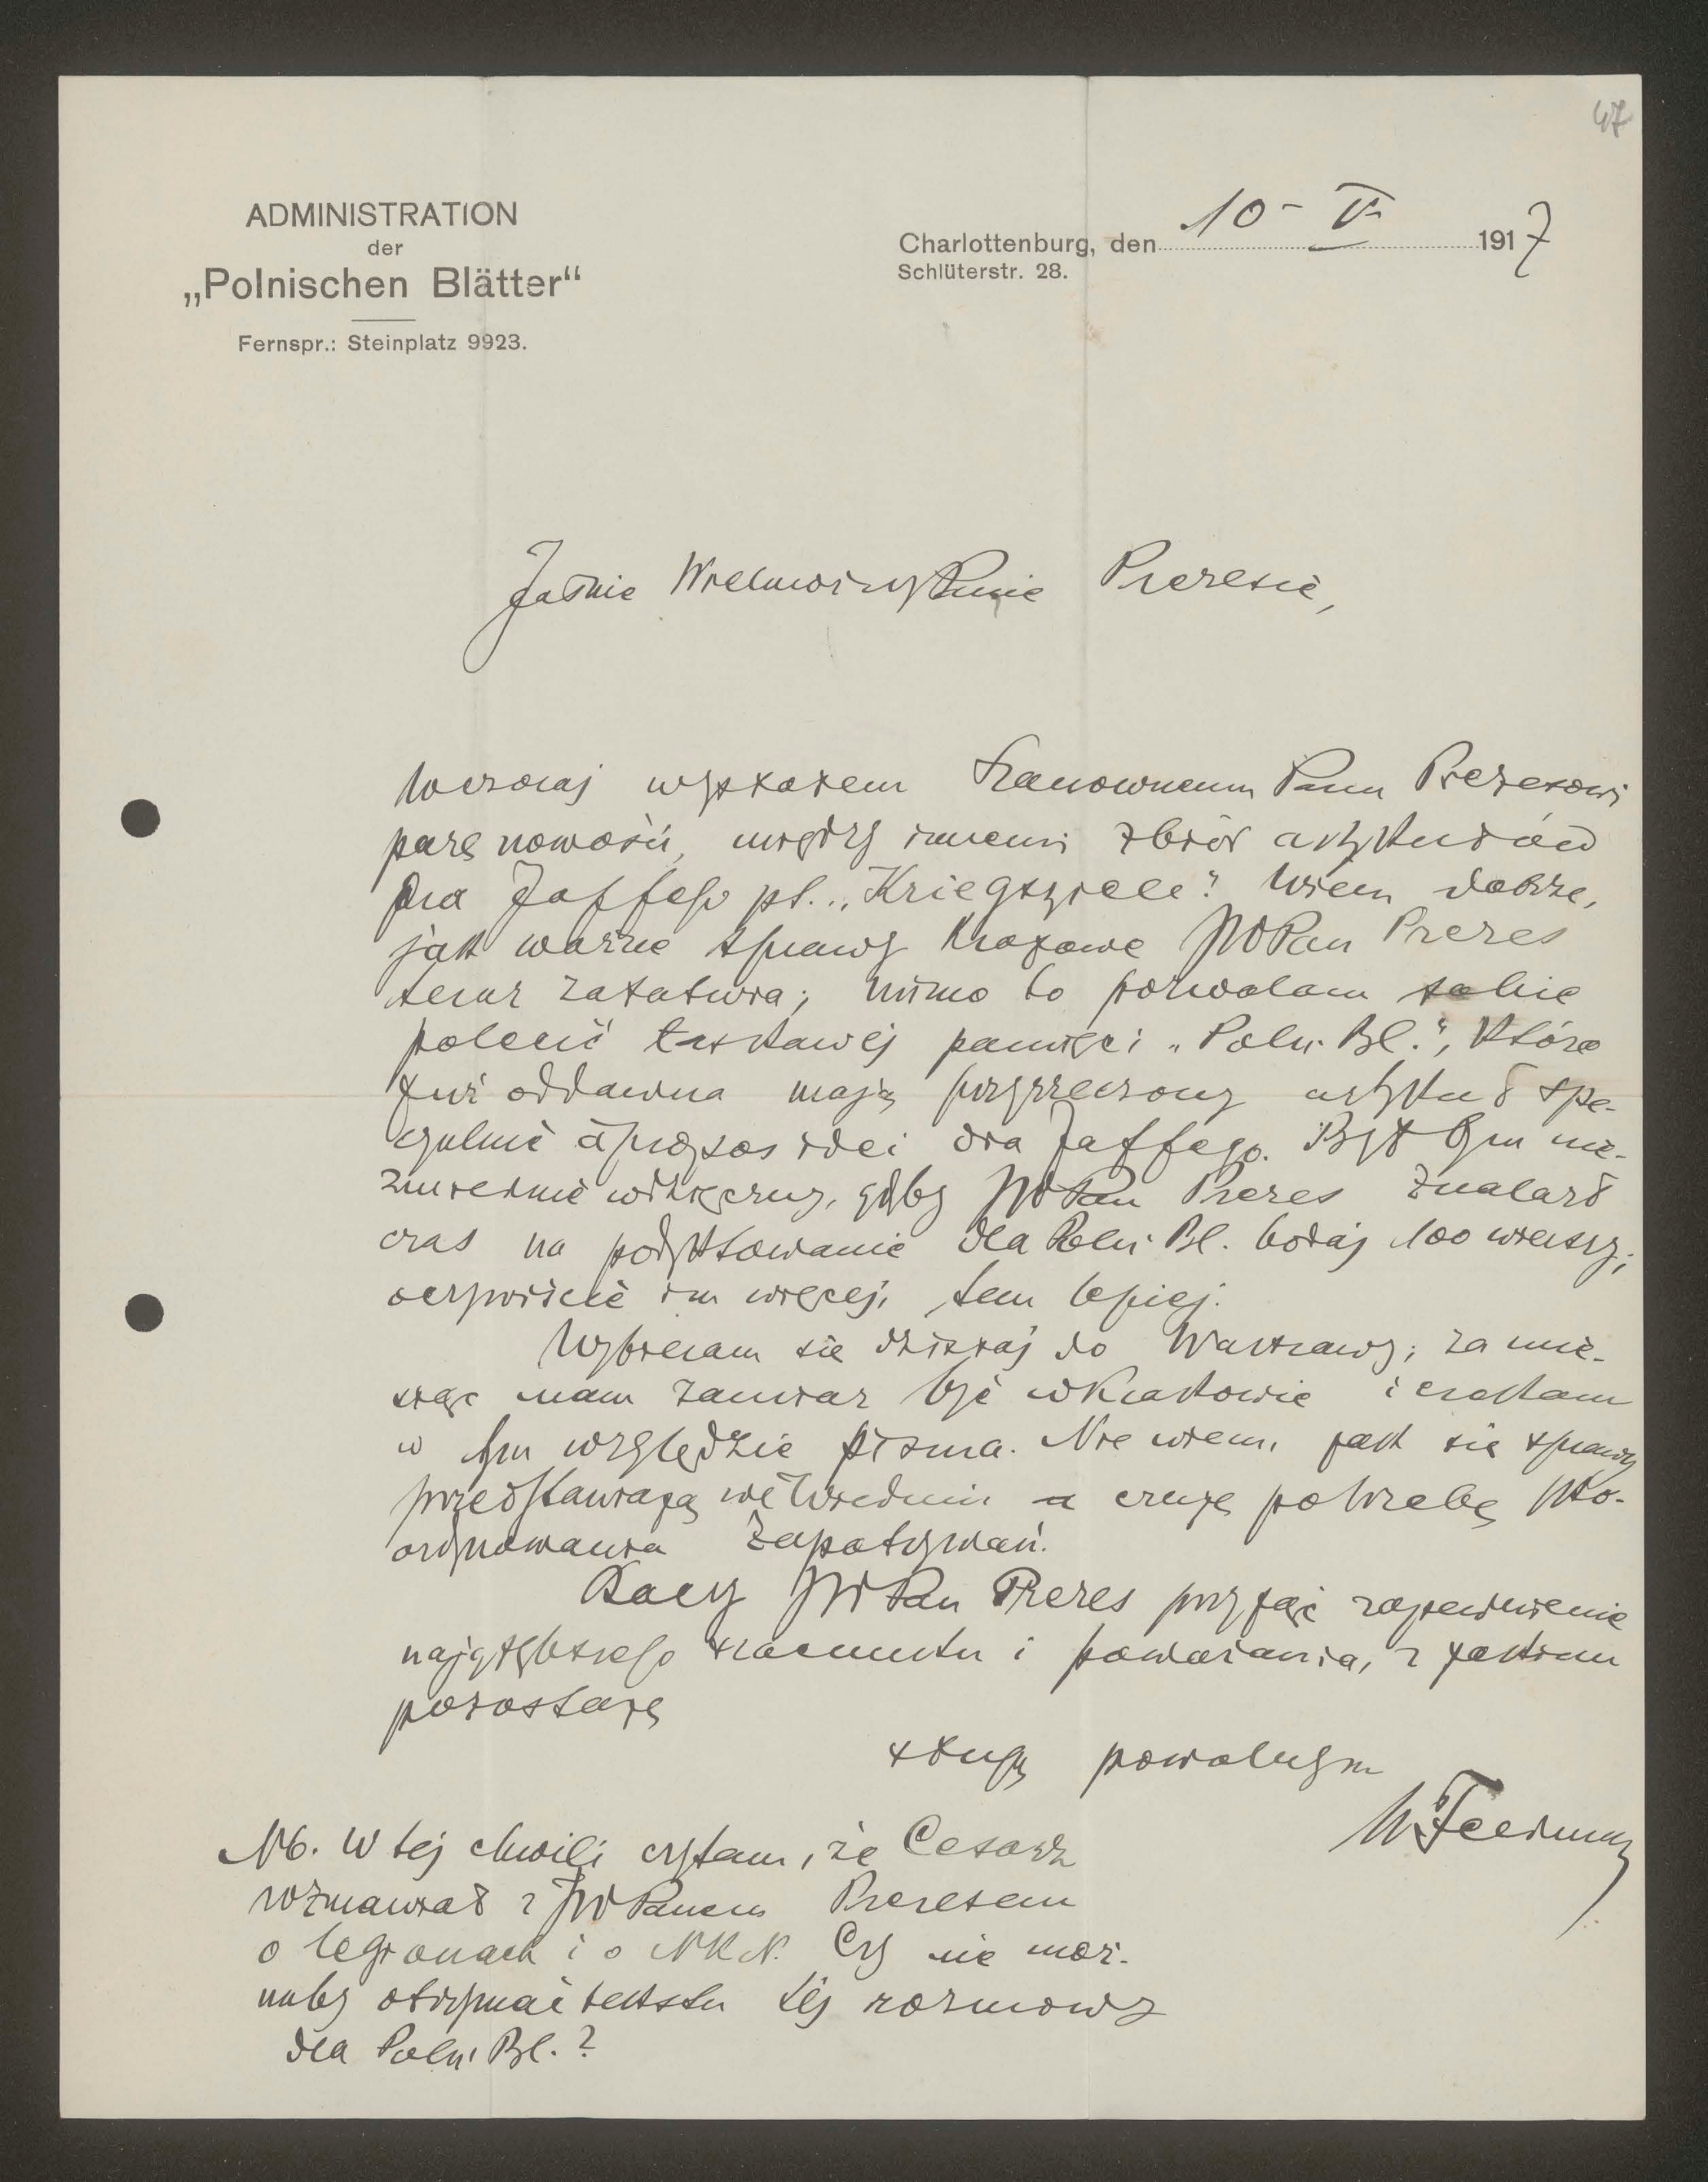 47
ADMINISTRATION
der
„Polnischen Blätter“
Fernspr.: Steinplatz 9923.
Charlottenburg, den 10 - V 1917
Schlüterstr. 28.
Jaśnie Wielmożny Panie Prezesie,
Wczoraj wysłałem Szanownemu Panu Prezesowi
parę nowości, między innemi zbiór artykułów
Dra Jaffego pt. „Kriegsziele“. Wiem dobrze,
jak ważne sprawy krajowe JWPan Prezes
teraz załatwia; mimo to pozwalam sobie
polecić łaskawej pamięci „Poln. Bl.“, które
już oddawna mają przyrzeczony artykuł spe-
cyalnie à propos idei dra Jaffego. Byłbym nie-
zmiernie wdzięczny, gdyby JWPan Prezes znalazł
czas na podyktowanie dla Poln. Bl. bodaj 100 wierszy;
oczywiście im więcej, tem lepiej.
Wybieram się dzisiaj do Warszawy; za mie-
siąc mam zamiar być w Krakowie i czekam
w tym względzie pisma. Nie wiem, jak się sprawy
przedstawiają we Wiedniu a czuję potrzebę sko-
ordynowania zapatrywań.
Raczy JWPan Prezes przyjąć zapewnienie
najgłębszego szacunku i poważania, z jakiem
pozostaję
sługą powolnym
WFeldman
NB. W tej chwili czytam, że Cesarz
rozmawiał z JWPanem Prezesem
o legionach i o NKN. Czy nie moż-
naby otrzymać tekstu tej rozmowy
dla Poln. Bl.?